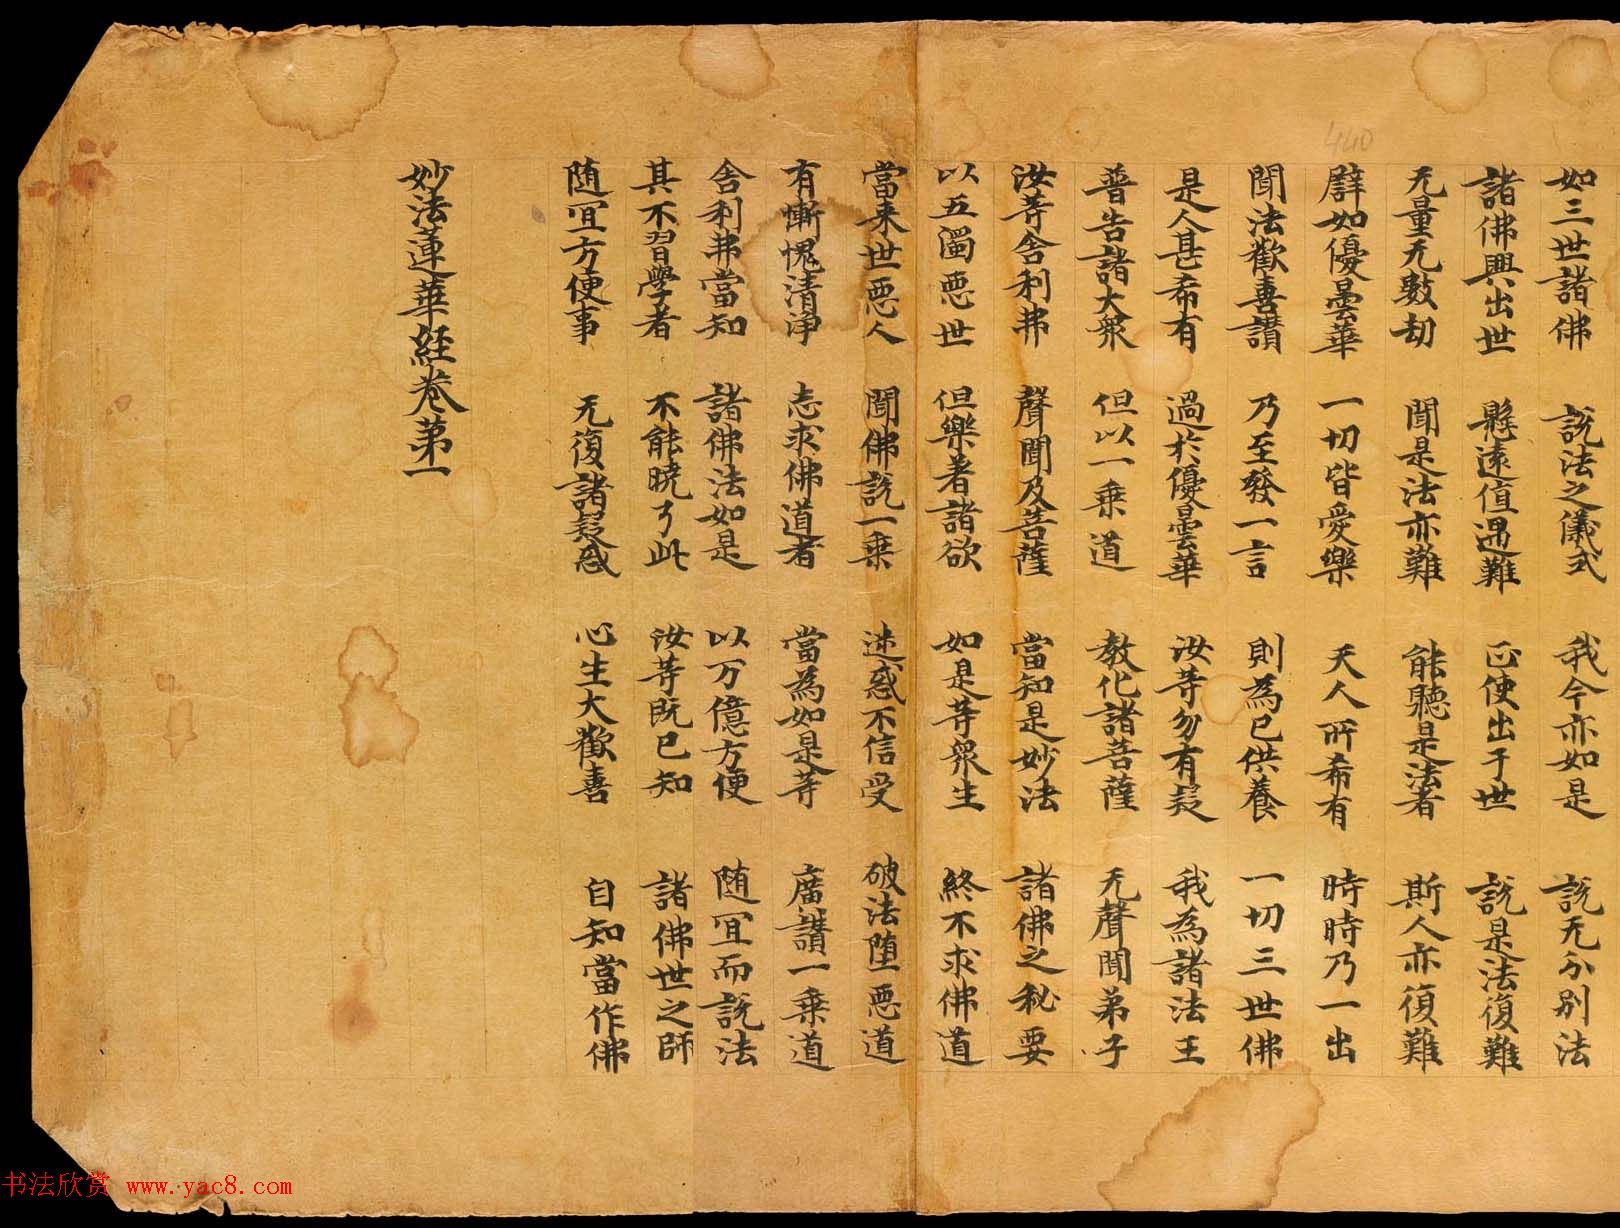 440
如三世諸佛 說法之儀式 我今亦如是 說无分別法
諸佛興出世 懸遠值遇難 正使出于世 說是法復難
无量无數劫 聞是法亦難 能聽是法者 斯人亦復難
辟如優曇華 一切皆愛樂 天人所希有 時時乃一出
聞法歡喜讚 乃至發一言 則為已供養 一切三世佛
是人甚希有 過於優曇華 汝等勿有疑 我為諸法王
普告諸大衆 但以一乗道 教化諸菩薩 无聲聞弟子
汝等舍利弗 聲聞及菩薩 當知是妙法 諸佛之秘要
以五濁惡世 但樂著諸欲 如是等衆生 終不求佛道
當来世惡人 聞佛說一乗 迷惑不信受 破法堕惡道
有慚愧清淨 志求佛道者 當為如是等 廣讚一乗道
舍利弗當知 諸佛法如是 以万億方便 随冝而說法
其不習學者 不能曉了此 汝等既已知 諸佛世之師
随冝方便事 无復諸疑惑 心生大歡喜 自知當作佛
妙法蓮華経卷第一
书法欣赏 www.yac8.com